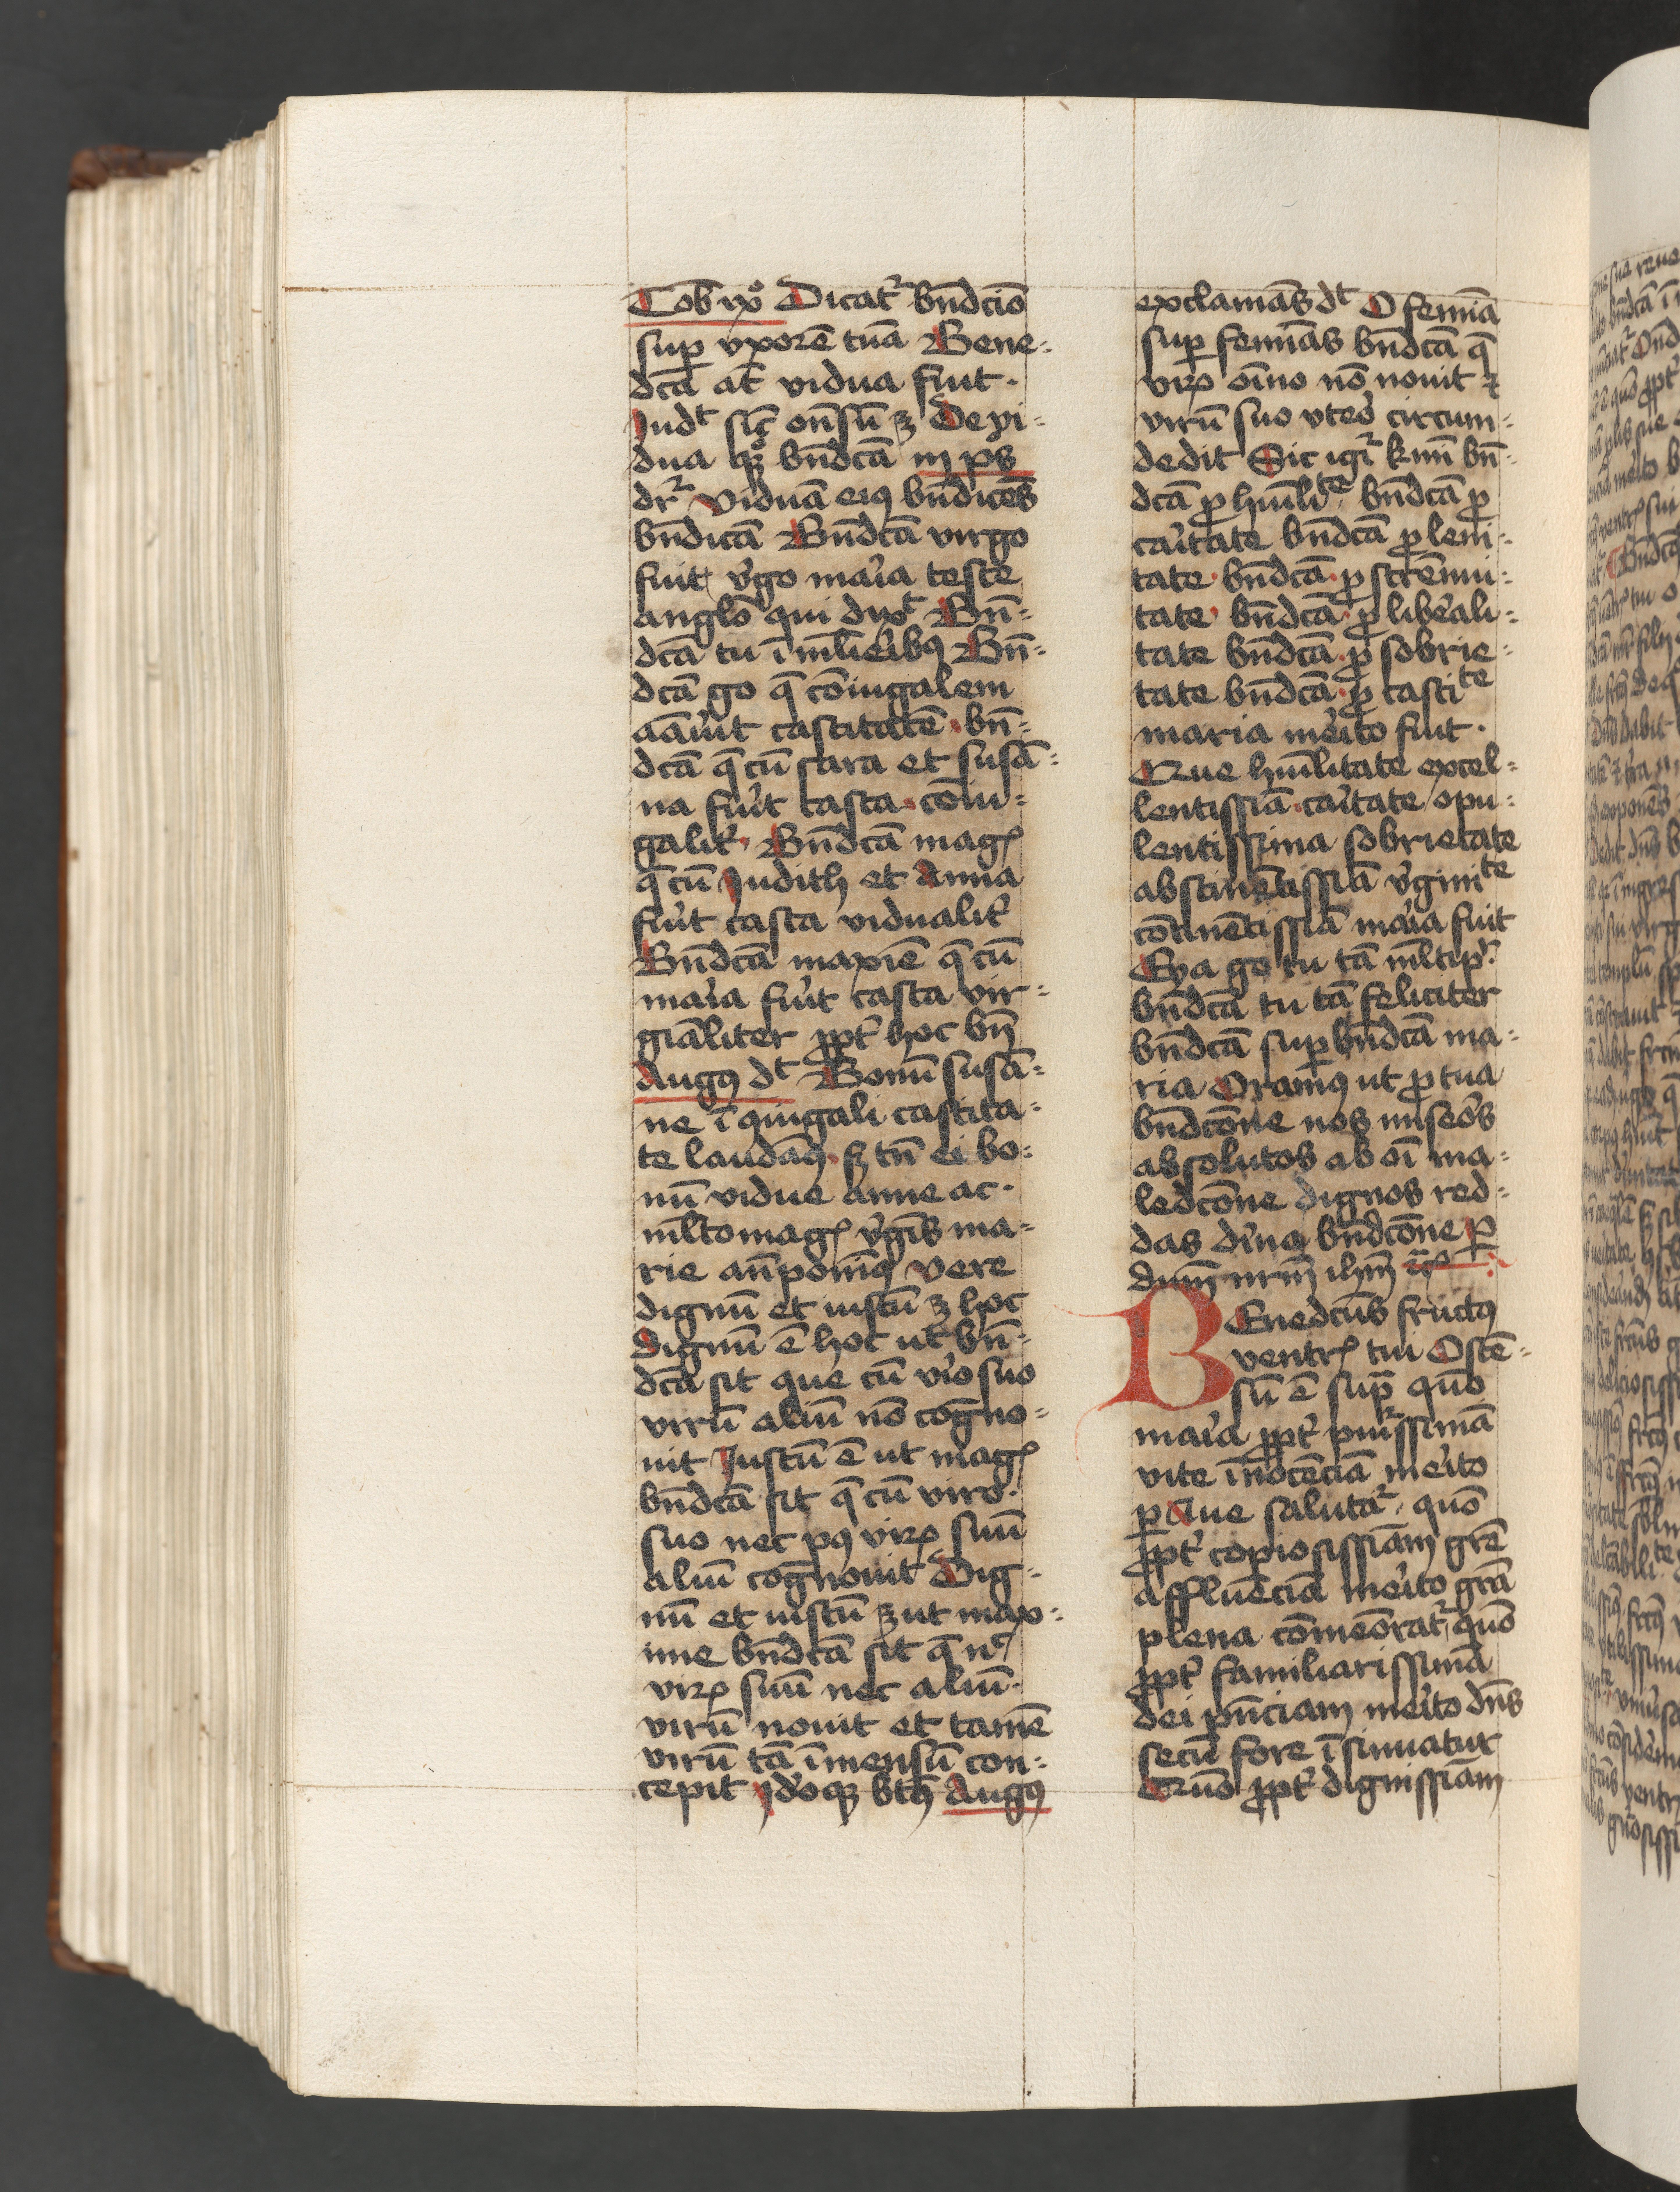 Tob ixº Dicat᷑ bn̄dcio
suꝑ vxorē tuā Bene-
dcā at̄ vidua fuit
Judt sic̄ on̄sū ꝫ De vi-
dua qꝫ bn̄dcā in ps
dr᷑ Viduā eiꝰ bn̄dicēs
bn̄dicā Bn̄dcā virgo
fuit v̓go mar̓ia teste
anglō qui dixt Bn̄-
dcā tu ī ml̄ieribꝰ Bn̄-
dcā go q̄ cōniugalem
aāuit castitatē bn̄-
dcā q̄ cū sara et susā-
na fuit casta coniu-
galit᷑ Bn̄dcā magꝭ
q̄ cū Judith et Anna
fuit casta vidualit᷑
Bn̄dcā maxīe q̄ cū
mar̓ia fuit casta vir-
gīaliter ꝓpt᷑ hoc bn̄
Augꝰ dt Bonū susā-
ne ī ꝯiugali castita-
te laudāꝰ sꝫ tn̄ ei bo-
nū vidue anne ac
ml̄to magꝭ v̓gīs ma-
rie an̄ponīꝰ Vere
dignū et iustū ꝫ hoc
dignū ē hoc ut bn̄-
dcā sit que cū viro suo
virū aliū nō cogno-
uit Justū ē ut magꝭ
bn̄dcā sit q̄ cū viro
suo nec pꝰ virꝝ suū
aliū cognouit Dig-
nū et iustū ꝫ ut max-
ime bn̄dcā sit q̄ nc̄
virꝝ suū nec aliū
virū nouit et tamē
virū tā īmensū con-
cepit Jdōqꝫ bt̄ꝰ Augꝰ
exclamās dt O femīa
suꝑ femīas bn̄dcā q̄
virꝝ oīno nō nouit ⁊
virū suo vtero circum-
dedit Sic igr᷑ bn̄-
dcā ꝓ humlite bn̄dcā ꝓ
car̓itate bn̄dcā ꝓ leni-
tate bn̄dcā ꝓ strēnui-
tate bn̄dcā ꝓ liber̓ali-
tate bn̄dcā ꝓ sobrie-
tate bn̄dcā ꝓ castite
maria mer̓ito fuit
Que huīlitate excel-
lentissīa car̓itate opu-
lentissima sobrietate
abstinētissīa v̓ginite
cōtinētissīa mar̓ia fuit
Eya go tu tā ml̄tipr᷑
bn̄dcā tu tā feliciter
bn̄dcā suꝑ bn̄dcā ma-
ria Oramꝰ ut ꝓ tua
bn̄dcōne nos miseros
absolutos ab oī ma-
ledcōne dignos red-
das diuīa bn̄dcōne ꝑ
dnm̄ nrm̄ ihm̄ xp̄
BEnedcūs fructꝰ
ventrꝭ tui Ostē-
sū ē supᷓ quō
mar̓ia ꝓpt᷑ purissimā
vite īnocēciā mer̓ito
ꝑ Aue salutat᷑ quō
ꝓpt᷑ copiosissīam grē
affluēciā mer̓ito grā
plena cōmeōrat᷑ quō
ꝓpt᷑ familiarissimā
dei pn̄ciam mer̓ito dn̄s
secū fore īsinuatur
Quō ꝓpt᷑ dignissīam